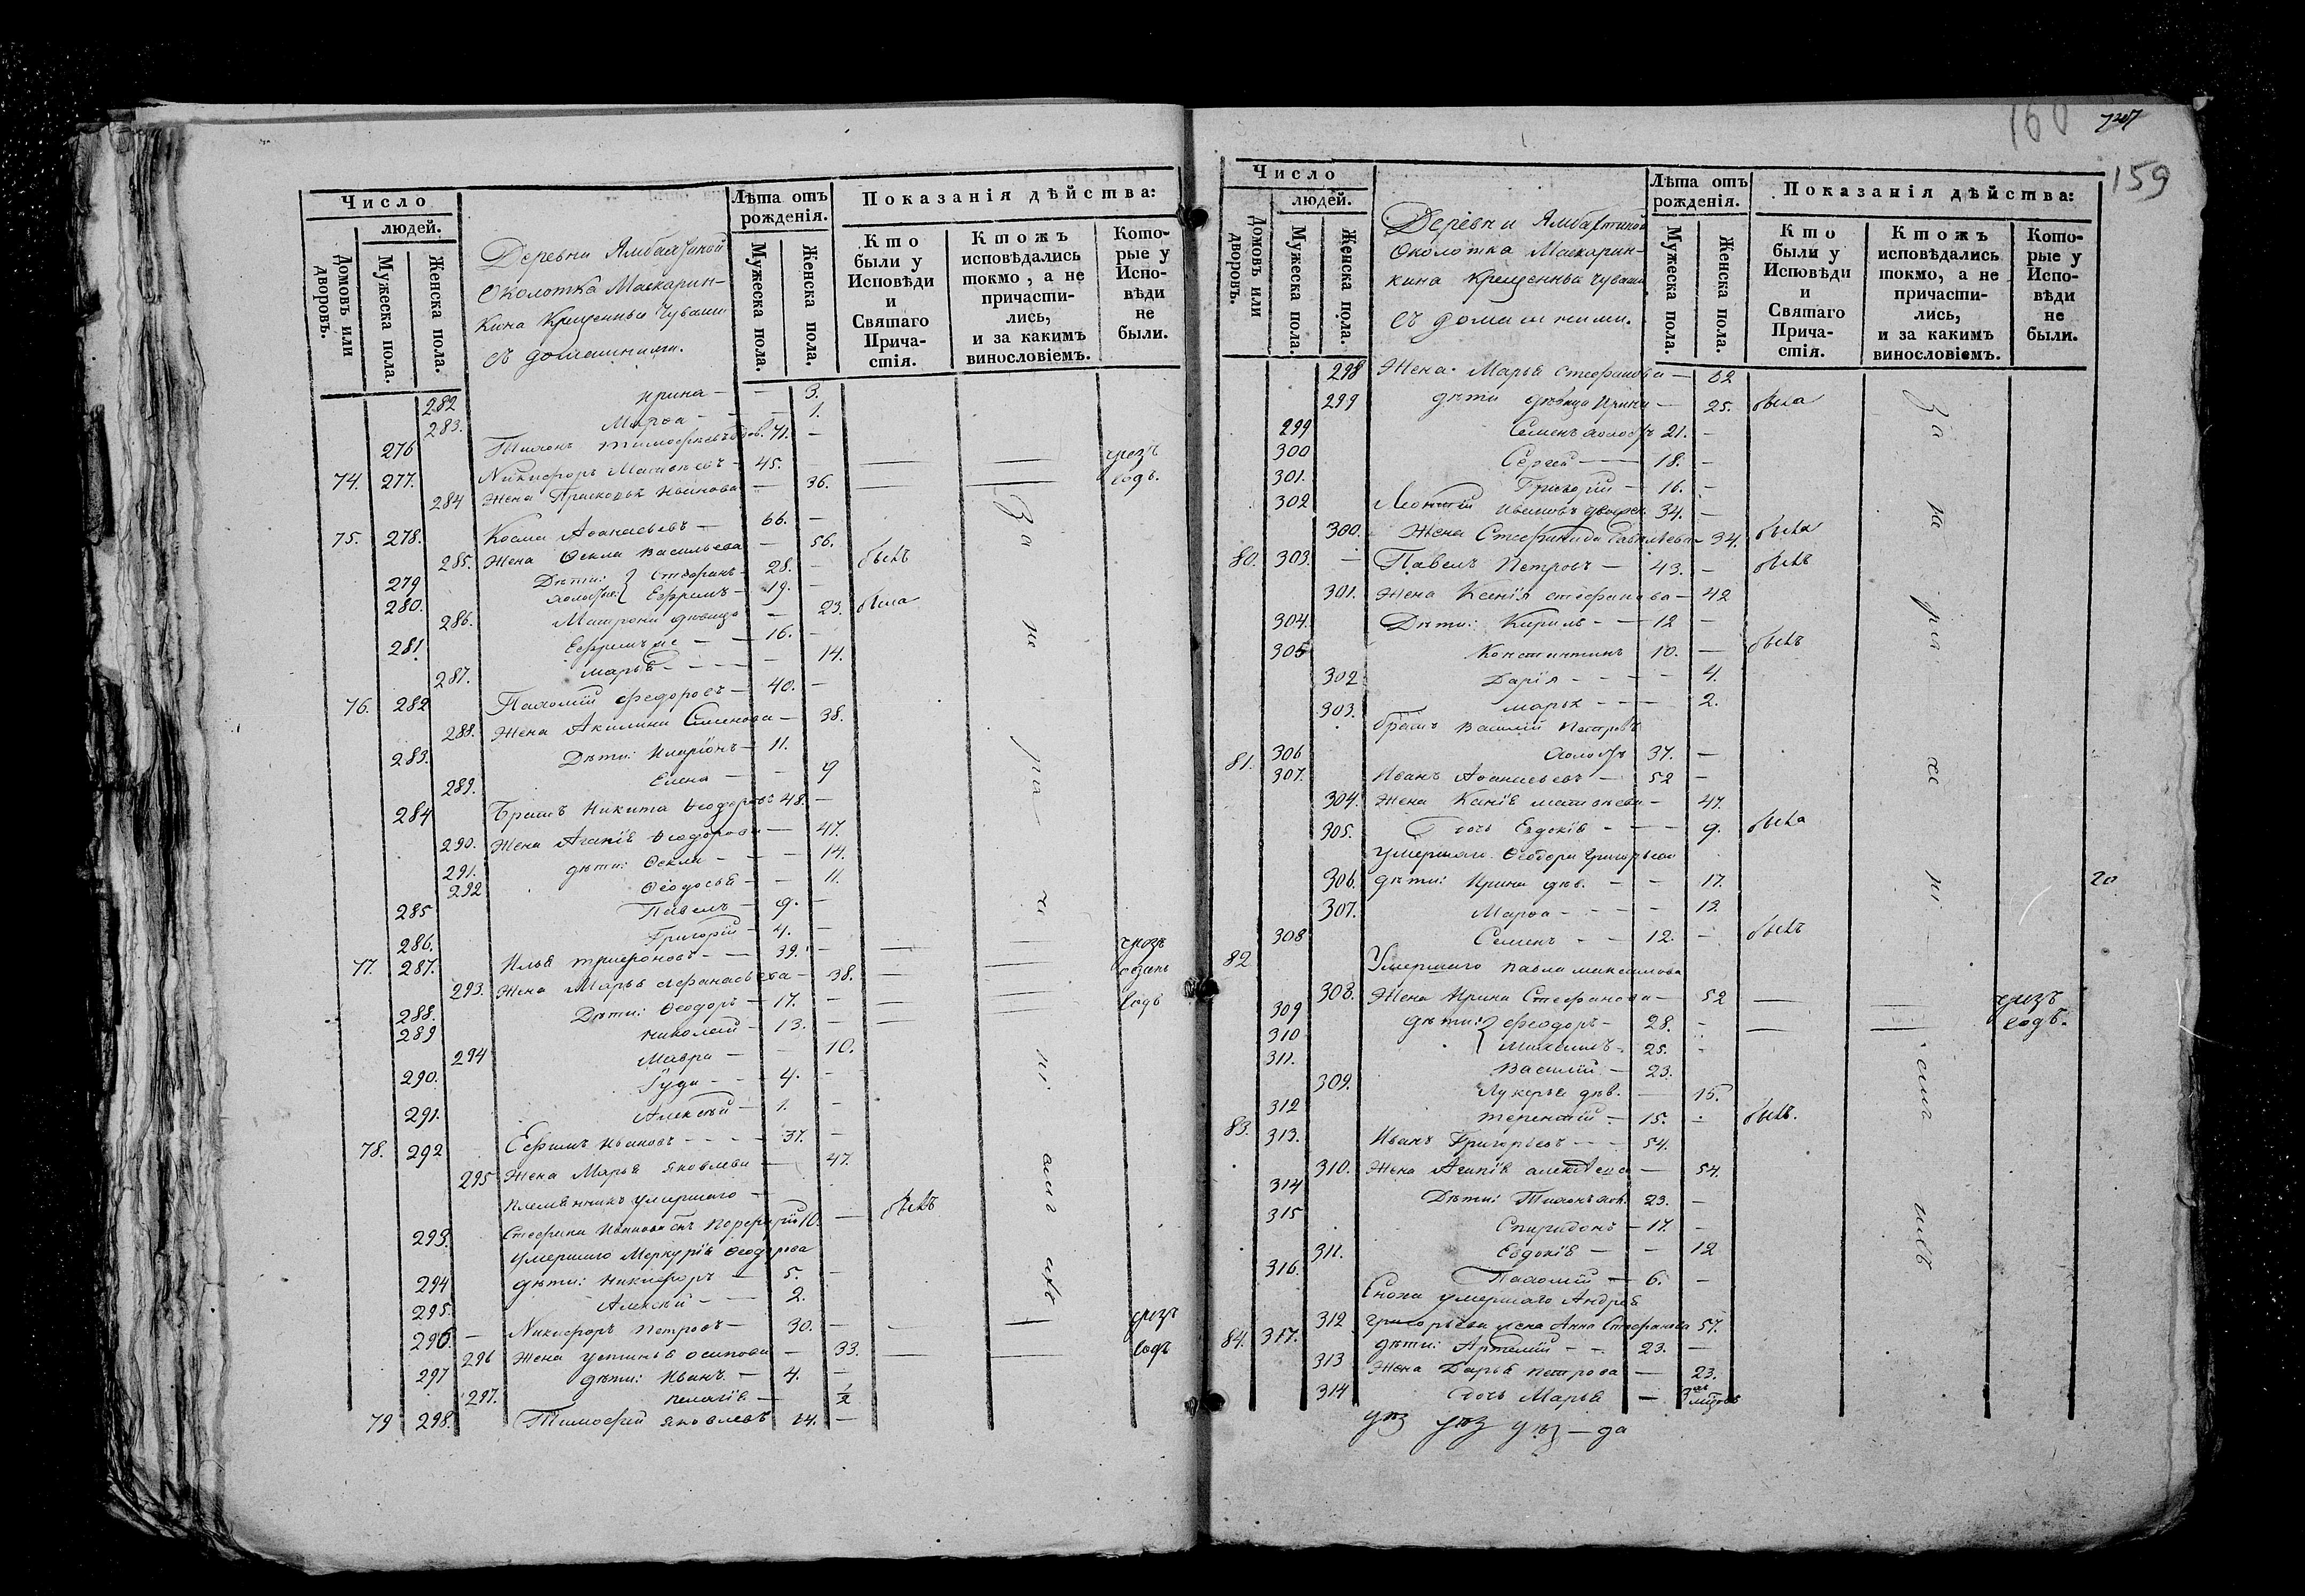 160
159
Число
людей.
Домовъ или дворовъ.
Мужеска пола.
Женска пола.
Деревни
Околотка Маскарин-
кина Крещенныя Чуваши
съ домашними.
Лѣта отъ рожденія.
Мужеска пола.
Женска пола.
Показанія дѣйства:
Кто были у Исповѣди и Святаго Прича-стія.
Ктожъ исповѣдались токмо, а не причасти-лись, и за какимъ винословіемъ.
Кото-рые у Испо-вѣди не были.
282 Ирина — — 3.
283. Марѳа — — 1.
276 Тихонъ Тимофеевъ вдов. 71. —
74. 277. Никифоръ Матвѣевъ — 45. — чрезъ
284 Жена Прасковья Иванова — 36. годъ.
75. 278. Косма Аѳанасьевъ — 66. —
285. Жена Ѳекла Васильева — 56. былъ
279 Дѣти: Стефанъ — 28. —
280. холосты: Ефремъ — 19. —
286. Матрона дѣвица — 23. была
281 Ефремъ же — 16. —
287. Марья — — — 14.
76. 282 Пахомій Федоровъ — 40. —
288. Жена Акилина Семенова — 38.
283. Дѣти: Иларіонъ — 11.
289. Елена — — 9
284 Братъ Никита Ѳеодоровъ 48. —
290. Жена Агапія Ѳеодорова — 47.
291. дѣти: Ѳекла — — 14.
292 Ѳеодосья — — 11.
285 Павелъ — 9. —
286. Григорій — 4. —
77. 287. Илья Трифоновъ — 39. — чрезъ
293. Жена Марья Афанасьева — 38. —
288. Дѣти: Ѳеодоръ — 17. — годъ
289 Николай — 13. —
294 Мавра — — 10.
290. Іуда — — 4. —
291. Алексѣй — 1. —
78. 292 Ефимъ Ивановъ — — 37. —
295 Жена Марья Яковлева — 47.
племянникъ умершаго —
293. Стефана Иванова сынъ Порфирій 10. — былъ
умершаго Меркурія Ѳеодорова
294 дѣти: Никифоръ — 5. —
295. Алексѣй — — 2.
296. — Никифоръ Петровъ — 30. — чрезъ
296 Жена Устинья Осипова — 33. годъ
297 дѣти: Иванъ — 4. —
297. Пелагія — 1/2
79 298. Тимофей Яковлевъ 14. —
Число
людей.
Домовъ или дворовъ.
Мужеска пола.
Женска пола.
Деревни
Околотка Маскарин-
кина Крещенныя Чуваши
съ домашними.
Лѣта отъ рожденія.
Мужеска пола.
Женска пола.
Показанія дѣйства:
Кто были у Исповѣди и Святаго Прича-стія.
Ктожъ исповѣдались токмо, а не причасти-лись, и за какимъ винословіемъ.
Кото-рые у Испо-вѣди не были.
298 Жена Марья Стефанова — 62
299 дѣти дѣвица Ирина — 25. была
299 Семенъ холостъ 21. —
300 Сергей — 18. —
301. Григорій — 16. —
302 Леонтій Ивановъ 34. —
300. Жена Стефанида — 34. была
80. 303. — Павелъ Петровъ — 43. — былъ
301. Жена Ксенія Стефанова — 42
304. Дѣти: Кирилъ — — 12 —
305 Константинъ 10. — былъ
302 Дарія — — — 4.
303. Марья — — — 2.
братъ Василій Петровъ
306 холостъ 37. —
81. 307. Иванъ Аѳанасьевъ — 52 —
304. Жена Матвѣева — 47.
305. дочь Евдокія — — — 9. была
умершаго Ѳеодора Григорьева
306. дѣти: Ирина дѣв. — — 17. 20
307. Марѳа — — — 12
308 Семенъ — — 12. — былъ
82 Умершаго Павла Максимова
308. Жена Ирина Стефанова — 52 — чрезъ
309 дѣти: Феодоръ — 28. — годъ.
310 25. —
311. Василій — 23.
309. Лукерья дѣв. — 16.
312 Терентій — 15. — былъ.
83. 313. Иванъ Григорьевъ — — 54.
310. Жена Агапія Алексѣева — 54.
314 Дѣти: Тихонъ хол. 23. —
315 Спиридонъ — 17. —
311. Евдокія — — 12
316. Пахомій — 6. —
Сноха умершаго Андрея
312 Григорьева жена Анна Стефанова 57.
84. 317. дѣти: Артемій — — 23. —
313 Жена Дарья Петрова — 23.
314 дочь Марья —